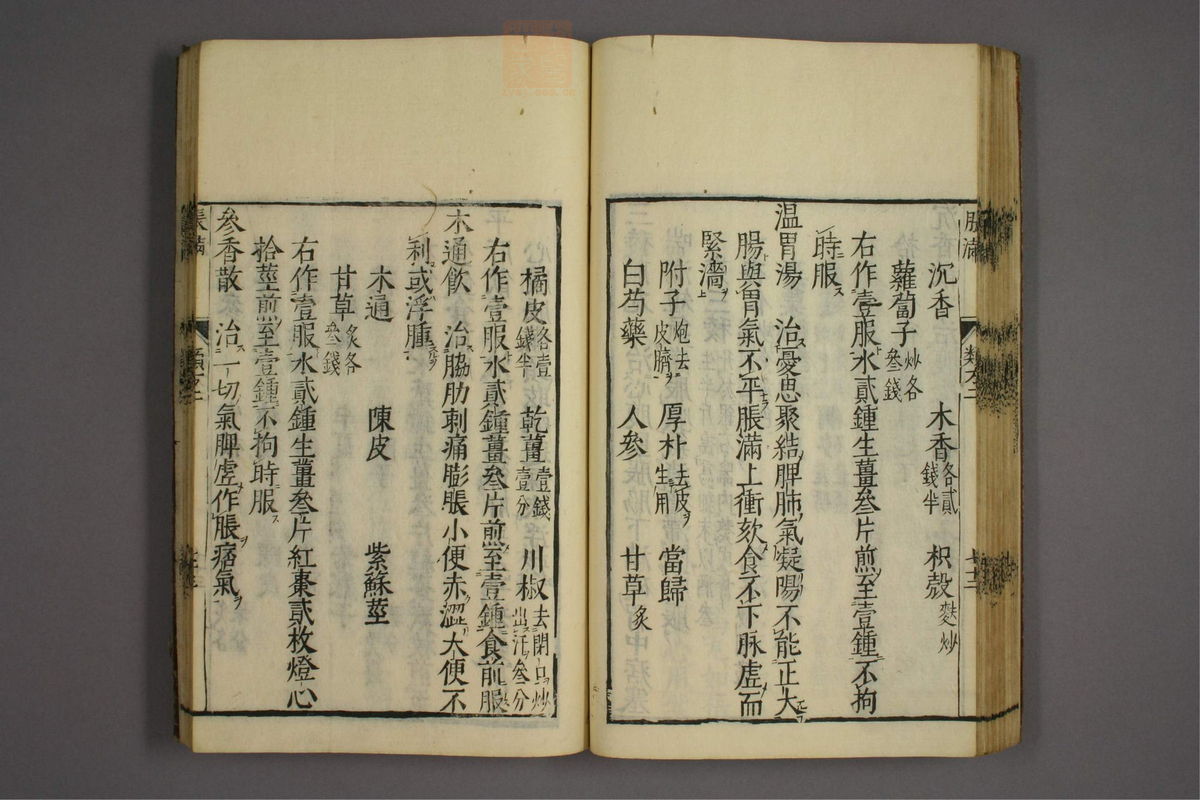 脹滿
沉香　木香各貳錢半　枳殼麩炒
蘿蔔子炒各叄錢
右作壹服水貳鍾生薑叄片煎至壹鍾不拘
時服
温胃湯　治憂思聚結脾肺氣凝陽不能正大
腸與胃氣不平脹滿上衝欬食不下脉虛而
緊濇
附子炮去皮臍　厚朴去皮生用　當歸
白芍藥　人參　甘草炙
橘皮各壹錢半　乾薑壹錢壹分　川椒去閉口炒出汗叄分
右作壹服水貳鍾薑叄片煎至壹鍾食前服
木通飲　治脇肋刺痛膨脹小便赤澀大便不
利或浮腫
木通　陳皮　紫蘇莖
甘草炙各叄錢
右作壹服水貳鍾生薑叄片紅棗貳枚燈心
拾莖煎至壹鍾不拘時服
參香散　治一切氣脾虛作脹痞氣